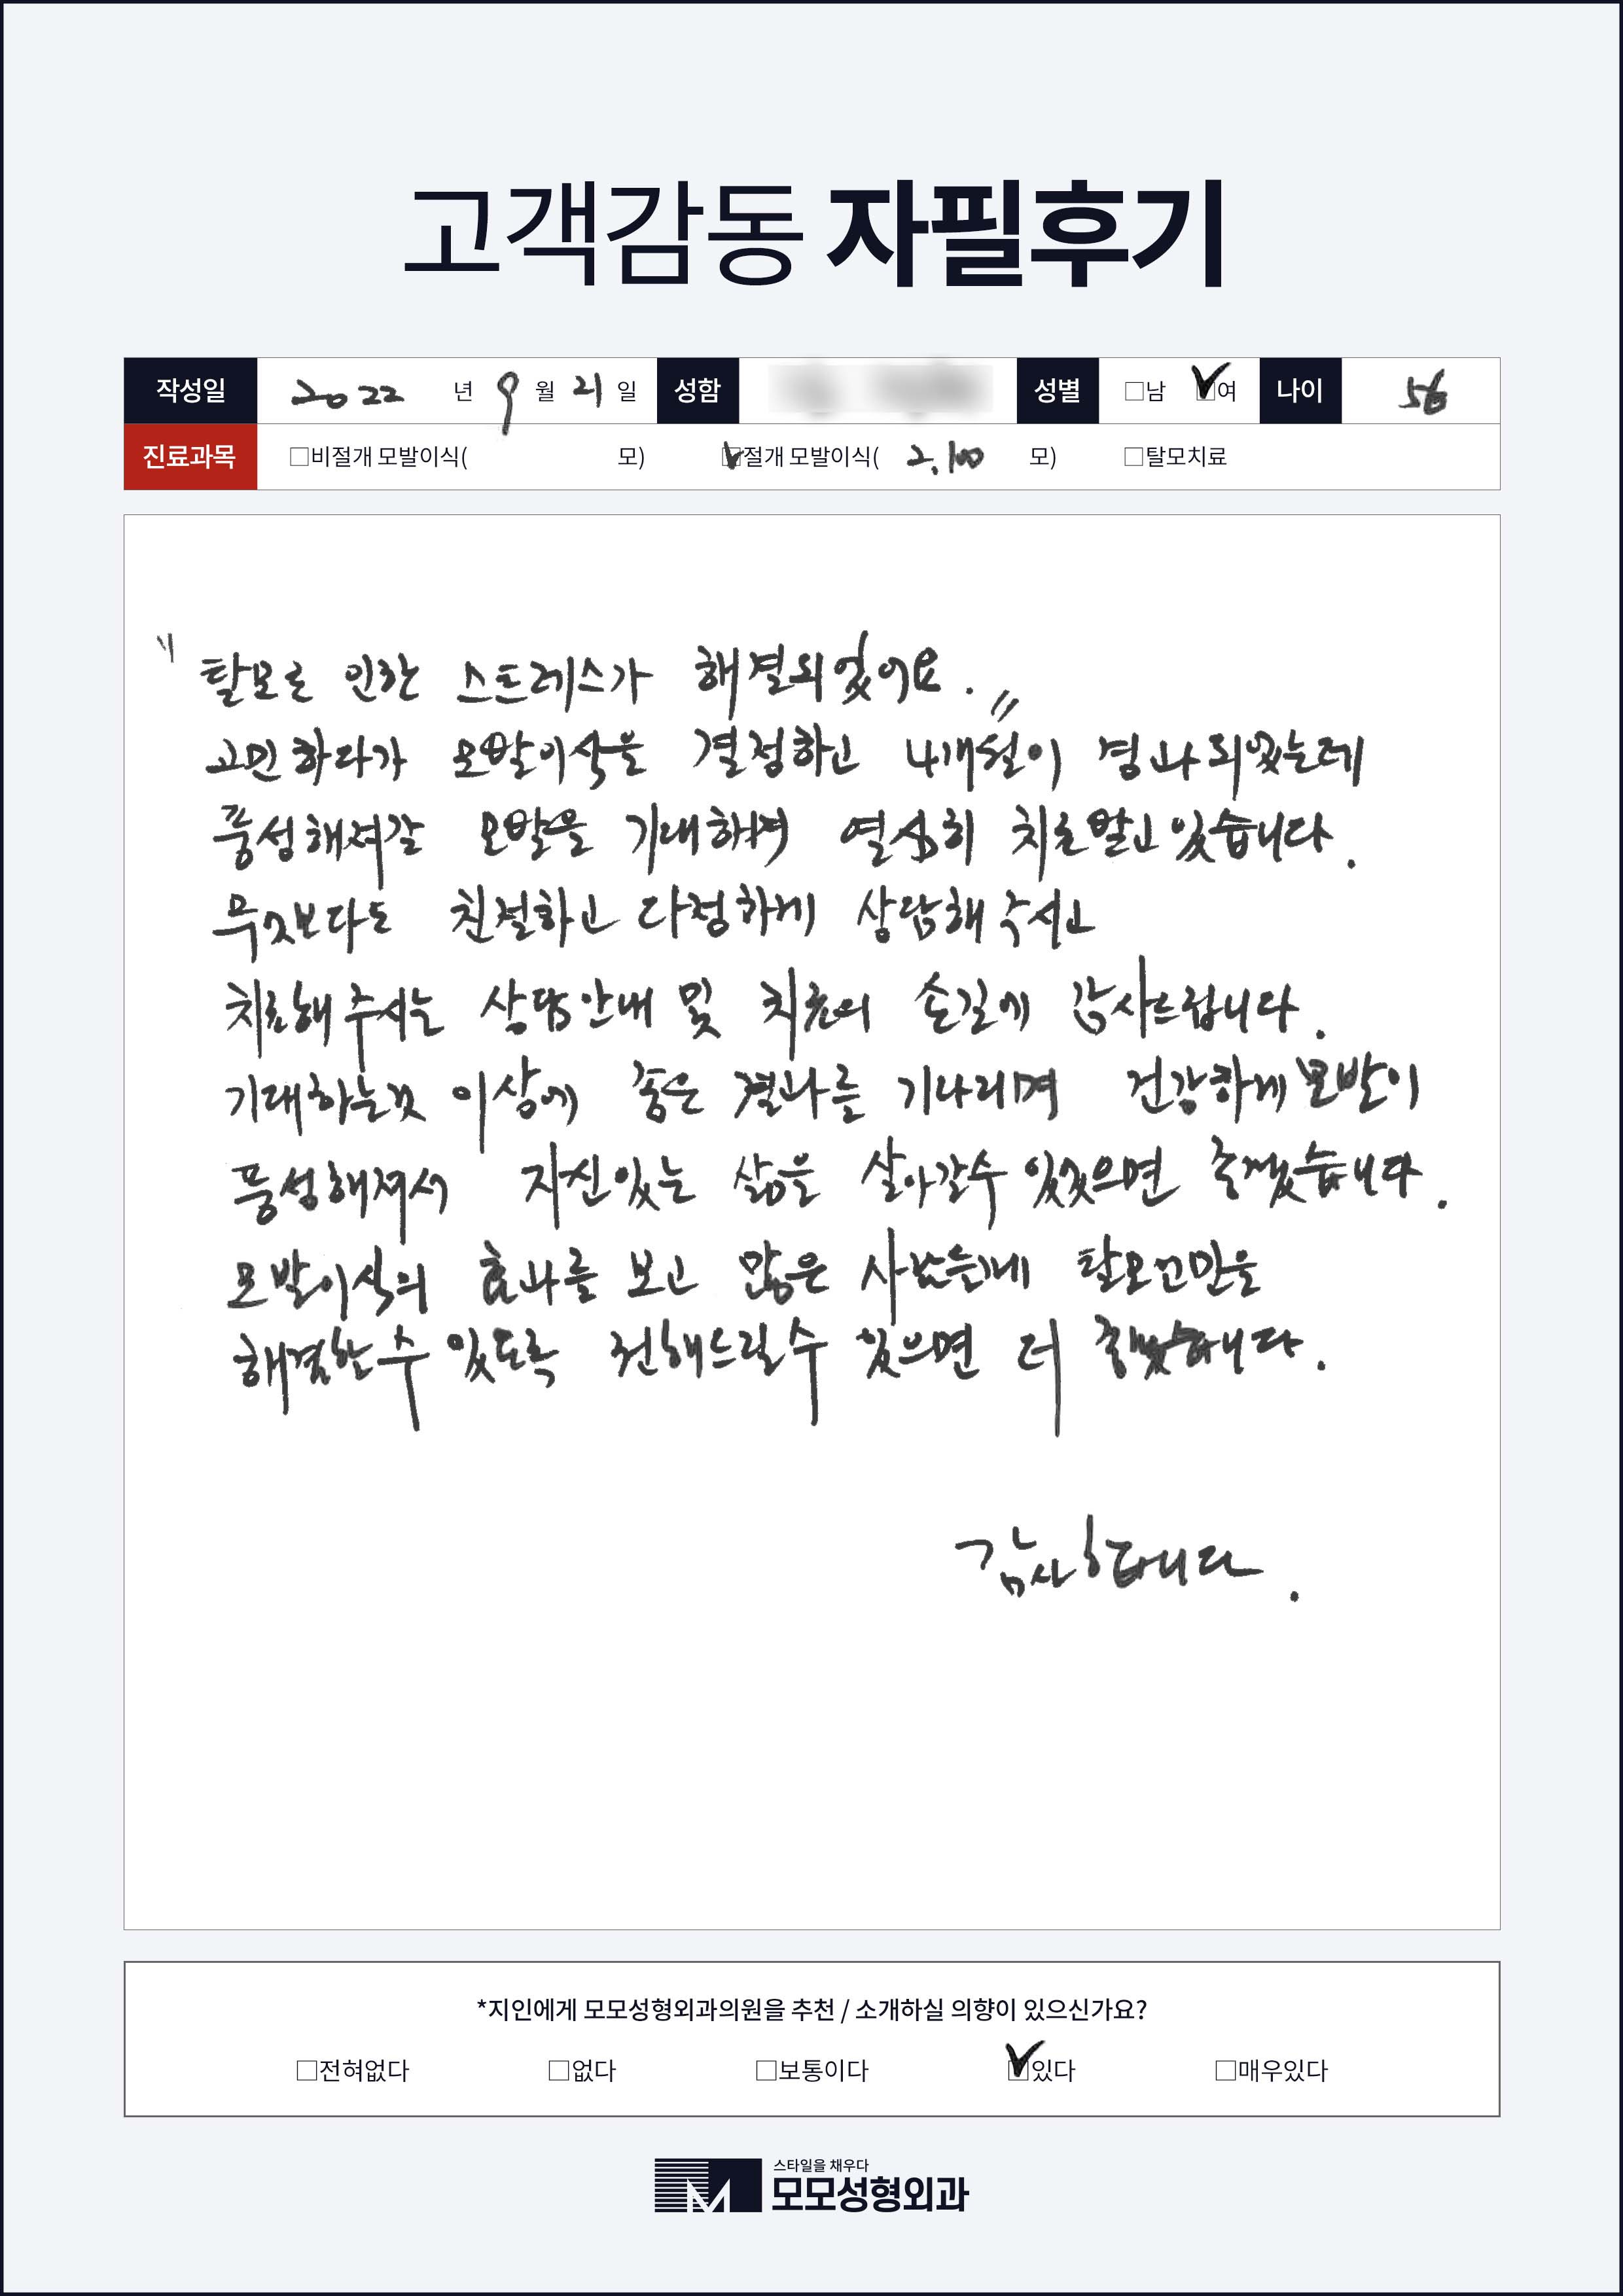 고객감동 자필후기
작성일 2022 년 9 월 21 일 성함 성별 □남 ☑여 나이 56
진료과목 □비절개 모발이식( 모) ☑절개 모발이식( 2,100 모) □탈모치료
" 탈모로 인한 스트레스가 해결되었어요. "
고민하다가 모발이식을 결정하고 4개월이 경과되었는데
풍성해져갈 모발을 기대하며 열심히 치료받고 있습니다.
무엇보다도 친절하고 다정하게 상담해 주시고
치료해 주시는 상담안내 및 치료의 손길에 감사드립니다.
기대하는것 이상에 좋은 결과를 기다리며 건강하게 모발이
풍성해져서 자신있는 삶을 살아갈수 있었으면 좋겠습니다.
모발이식의 효과를 보고 많은 사람들에게 탈모고민을
해결할수 있도록 전해드릴수 있으면 더 좋겠습니다.
감사합니다.
*지인에게 모모성형외과의원을 추천 / 소개하실 의향이 있으신가요?
□전혀없다 □없다 □보통이다 ☑있다 □매우있다
스타일을 채우다
모모성형외과